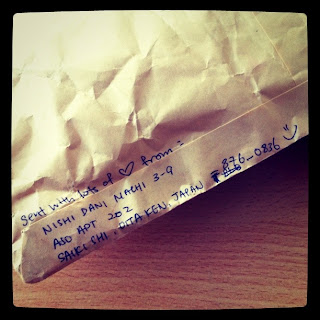 Sent with lots of ♡ from :
NISHI DANI MACHI 3-9
ASO APT 202
SAIKI SHI, OITA KEN, JAPAN 876-0836